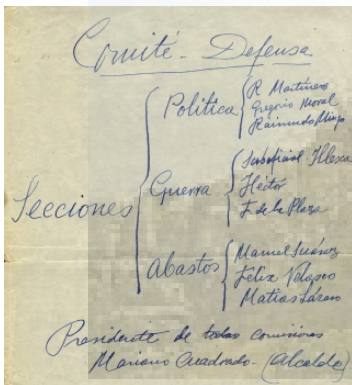 Comité - Defensa
Secciones
Política
R Martínez
Gregorio Moral
Raimundo
Guerra
Illescas
Héctor
F. de la Plaza
Abastos
Manuel Suárez
Félix Velasco
Matías Lázaro
Presidente de todas comisiones
Mariano Cuadrado - (Alcalde)